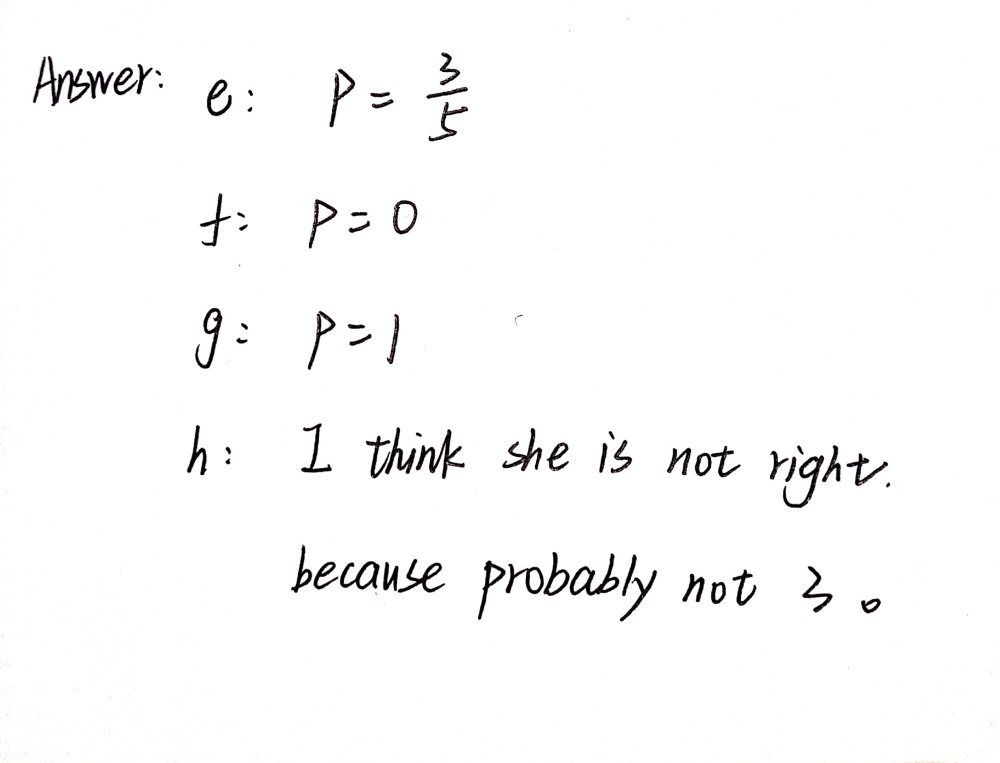 Answer: e: P = 3/5
f: P = 0
g: P = 1
h: I think she is not right.
because probably not 3 。